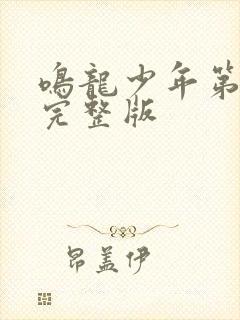 鳴龍少年第
完整版
昂盖伊